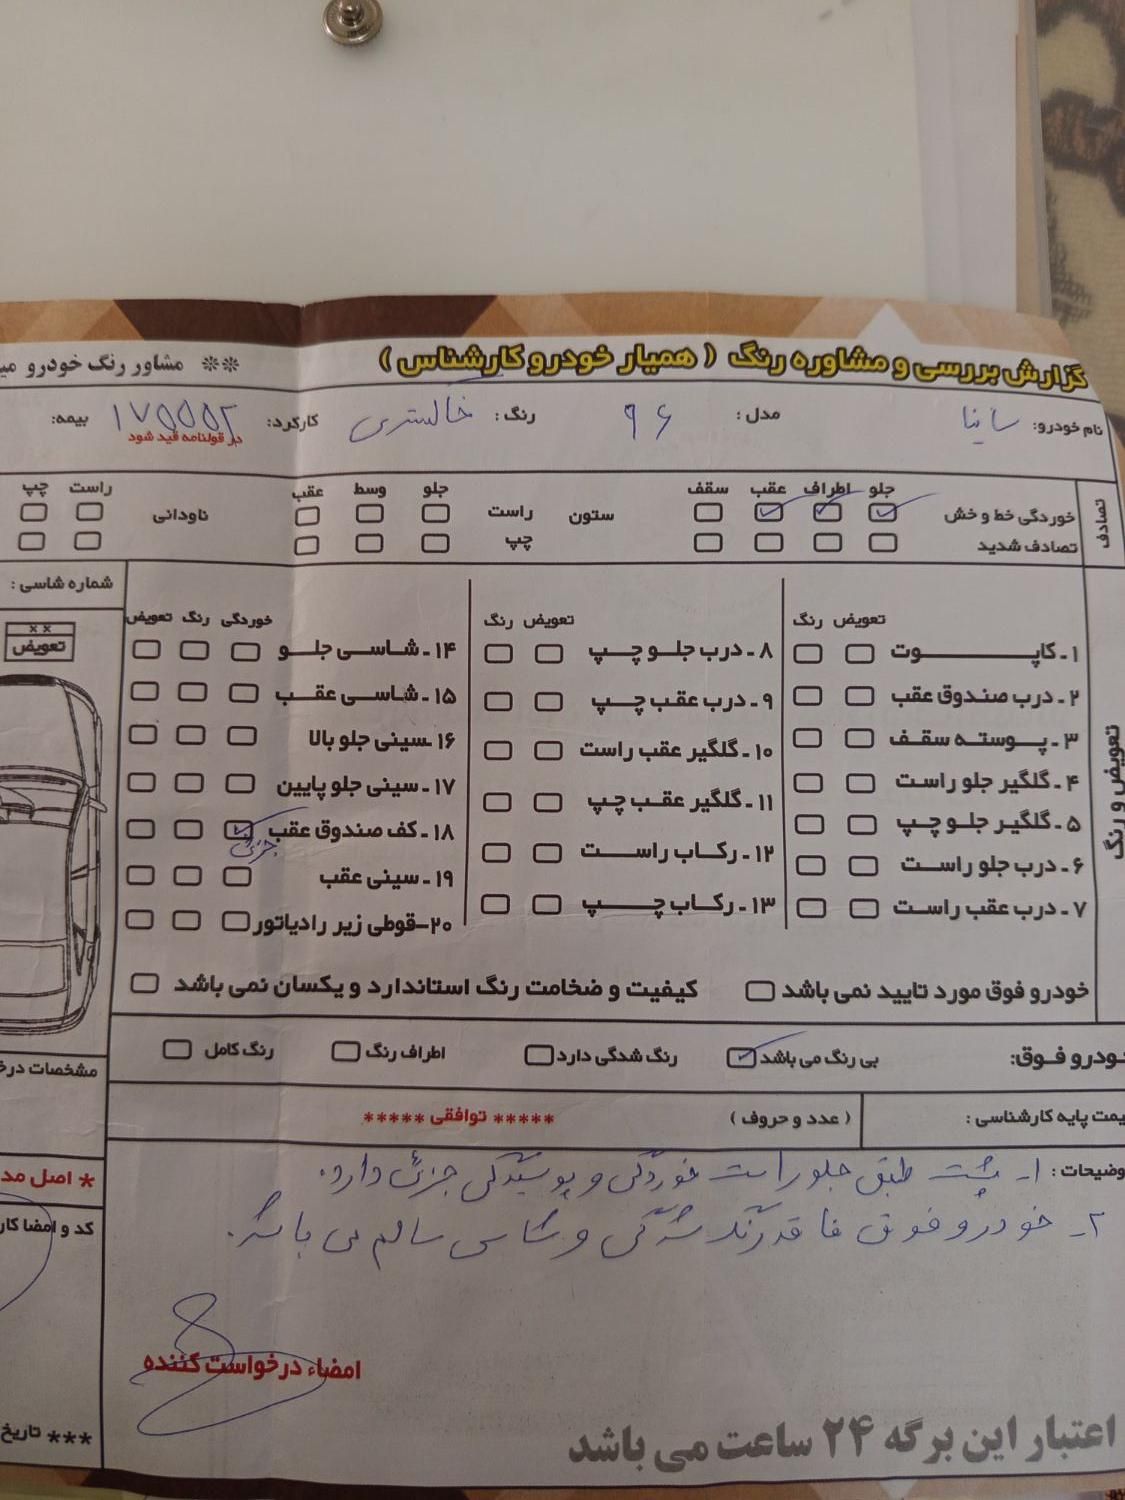 گزارش بررسی و مشاوره رنگ ( همیار خودرو کارشناس ) ** مشاور رنگ خودرو
نام خودرو: ساینا مدل: ۹۶ رنگ: خاکستری کارکرد: بیمه:
در قولنامه قید شود
تصادف
جلو اطراف عقب سقف
خوردگی خط و خش
تصادف شدید
ستون
جلو وسط عقب
راست
چپ
ناودانی
راست چپ
تعویض و رنگ
تعویض رنگ
۱ـ کاپوت
۲ـ درب صندوق عقب
۳ـ پوسته سقف
۴ـ گلگیر جلو راست
۵ـ گلگیر جلو چپ
۶ـ درب جلو راست
۷ـ درب عقب راست
تعویض رنگ
۸ـ درب جلو چپ
۹ـ درب عقب چپ
۱۰ـ گلگیر عقب راست
۱۱ـ گلگیر عقب چپ
۱۲ـ رکاب راست
۱۳ـ رکاب چپ
خوردگی رنگ تعویض
۱۴ـ شاسی جلو
۱۵ـ شاسی عقب
۱۶ـ سینی جلو بالا
۱۷ـ سینی جلو پایین
۱۸ـ کف صندوق عقب
جزئی
۱۹ـ سینی عقب
۲۰ـ قوطی زیر رادیاتور
شماره شاسی :
××
تعویض
خودرو فوق مورد تایید نمی باشد کیفیت و ضخامت رنگ استاندارد و یکسان نمی باشد
خودرو فوق: بی رنگ می باشد رنگ شدگی دارد اطراف رنگ رنگ کامل
قیمت پایه کارشناسی : ( عدد و حروف ) ***** توافقی *****
توضیحات : ۱ـ پشت طبق جلو راست خوردگی و پوسیدگی جزئی دارد.
۲ـ خودرو فوق فاقد رنگ شدگی و شاسی سالم می باشد.
امضاء درخواست کننده
اعتبار این برگه ۲۴ ساعت می باشد
مشخصات
* اصل
کد و امضا
*** تاریخ